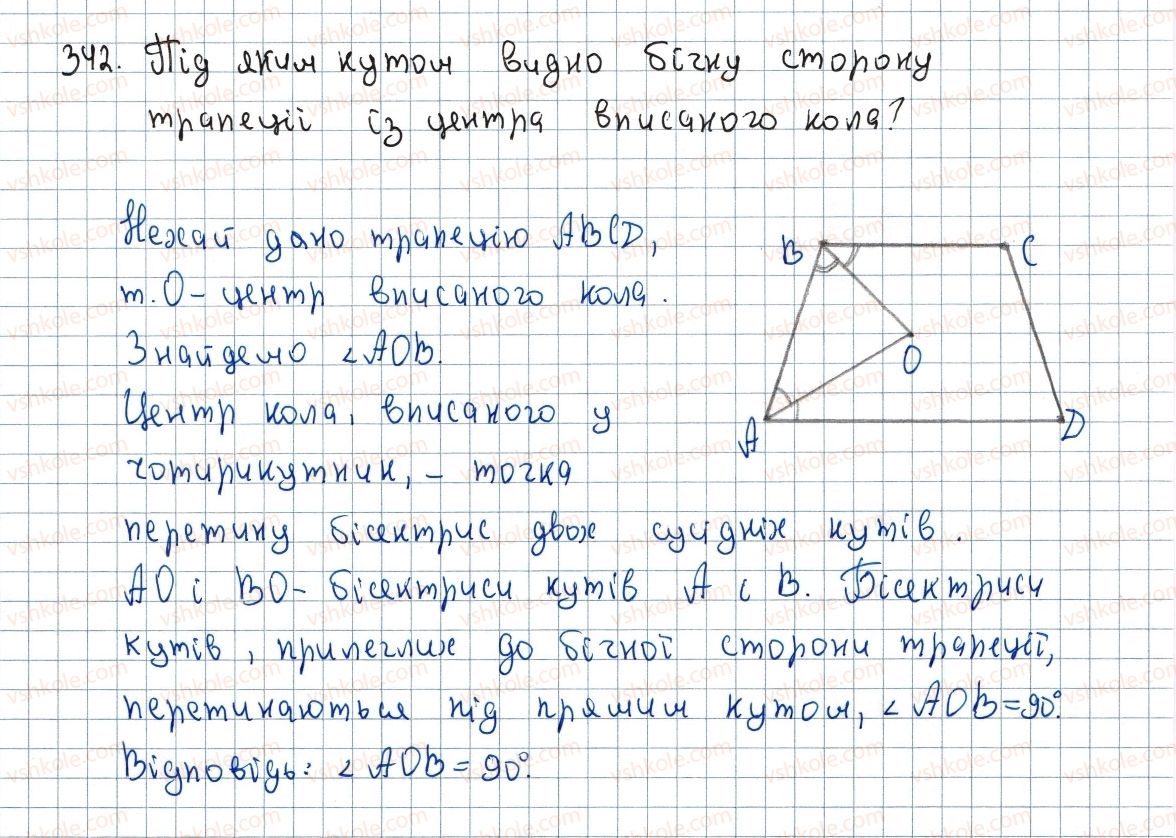 342. Під яким кутом видно бічну сторону
трапеції із центра вписаного кола?
Нехай дано трапецію ABCD,
т. O – центр вписаного кола.
Знайдемо ∠AOB.
Центр кола, вписаного у
чотирикутник, – точка
перетину бісектрис двох сусідніх кутів.
AO і BO – бісектриси кутів A і B. Бісектриси
кутів, прилеглих до бічної сторони трапеції,
перетинаються під прямим кутом, ∠AOB = 90°.
Відповідь: ∠AOB = 90°.
B
C
O
A
D
vshkole.com